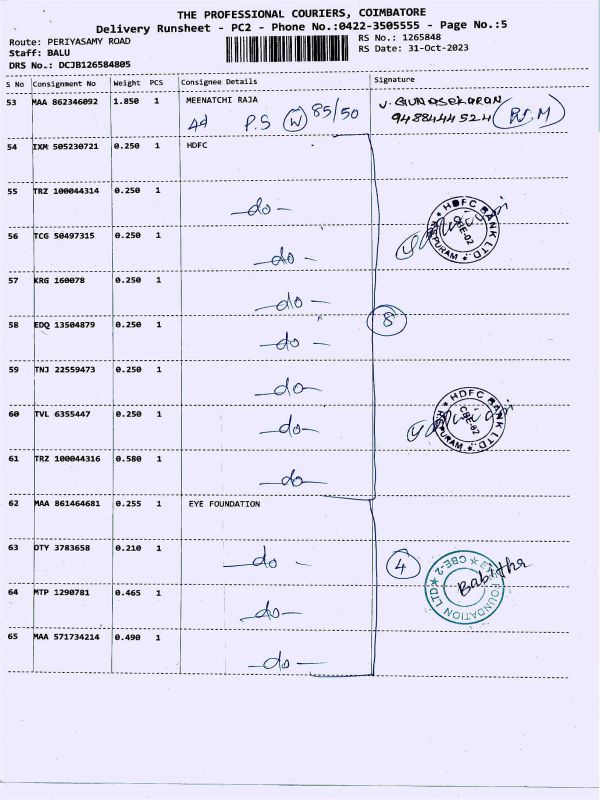 THE PROFESSIONAL COURIERS, COIMBATORE
Delivery Runsheet - PC2 - Phone No.:0422-3505555 - Page No.:5
Route: PERIYASAMY ROAD
RS No.: 1265848
Staff: BALU
RS Date: 31-Oct-2023
DRS No.: DCJB126584805
S No Consignment No Weight PCS Consignee Details Signature
53 MAA 862346092 1.850 1 MEENATCHI RAJA V. GUNASEKARAN
Ad P.S W 85/50 9488444524
54 IXM 505230721 0.250 1 HDFC
55 TRZ 100044314 0.250 1
-do-
HDFC BANK LTD. CBE-02
56 TCG 50497315 0.250 1
-do-
57 KRG 160078 0.250 1
-do-
8
58 EDQ 13504879 0.250 1
-do-
59 TNJ 22559473 0.250 1
-do-
HDFC BANK LTD. CBE-02
60 TVL 6355447 0.250 1
-do-
61 TRZ 100044316 0.580 1
-do-
62 MAA 861464681 0.255 1 EYE FOUNDATION
63 OTY 3783658 0.210 1
-do-
4
CBE-2 FOUNDATION LTD
Babitha
64 MTP 1290781 0.465 1
-do-
65 MAA 571734214 0.490 1
-do-